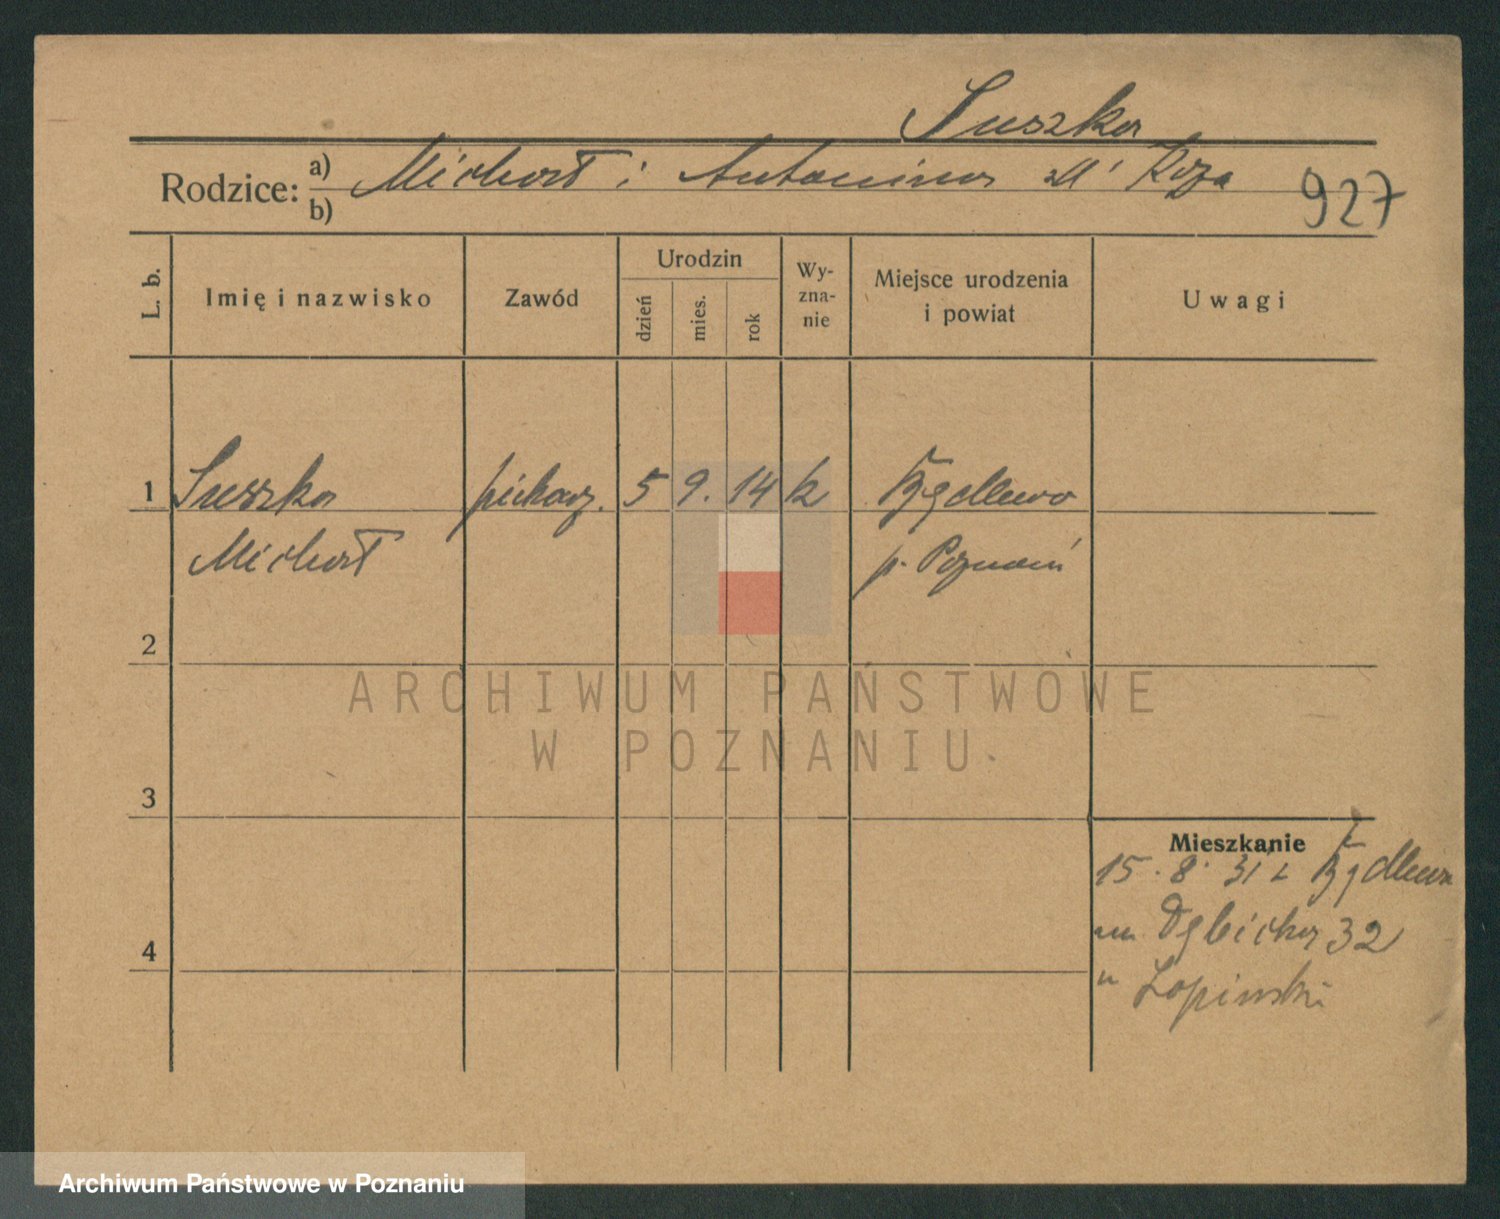 Suszka
Rodzice: a) Michał i Antonina
b)
927
L. b.
Imię i nazwisko
Zawód
Urodzin
dzień
mies.
rok
Wy-
zna-
nie
Miejsce urodzenia
i powiat
Uwagi
1 Suszka piekarz. 5 9. 14 k
Michał p. Poznań
2
ARCHIWUM PAŃSTWOWE
W POZNANIU
3
Mieszkanie
15. 8. 31 z
Dębicka 32
4
u Łopiński
Archiwum Państwowe w Poznaniu